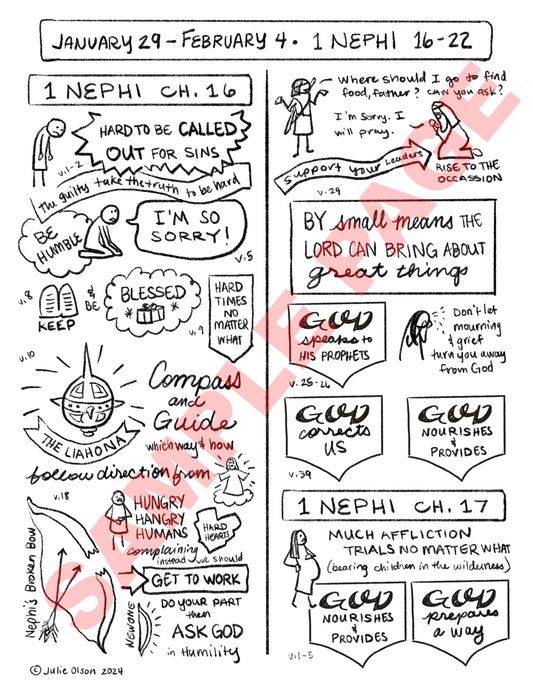 JANUARY 29 - FEBRUARY 4 • 1 NEPHI 16-22
1 NEPHI CH. 16
HARD TO BE CALLED
OUT FOR SINS
v.1-2
The guilty take the truth to be hard
BE
HUMBLE
I'M SO
SORRY!
v.5
v.8
KEEP
& BE
BLESSED
v.9
HARD
TIMES
NO
MATTER
WHAT
v.10
THE LIAHONA
Compass
and
Guide
which way & how
follow direction from
v.18
Nephi's Broken Bow
HUNGRY
HANGRY
HUMANS
HARD
HEARTS
complaining
instead we should
GET TO WORK
NEW ONE
DO YOUR PART
then
ASK GOD
in Humility
© Julie Olson 2024
Where should I go to find
food, father? can you ask?
I'm sorry. I
will pray.
Support your Leaders
v.29
RISE TO THE
OCCASSION
BY small means THE
LORD CAN BRING ABOUT
great things
GOD
speaks to
HIS PROPHETS
v.25-26
Don't let
mourning
& grief
turn you away
from God
GOD
corrects
US
v.39
GOD
NOURISHES
&
PROVIDES
1 NEPHI CH. 17
MUCH AFFLICTION
TRIALS NO MATTER WHAT
(bearing children in the wilderness)
GOD
NOURISHES
&
PROVIDES
v.1-5
GOD
prepares
a way
SAMPLE PAGE